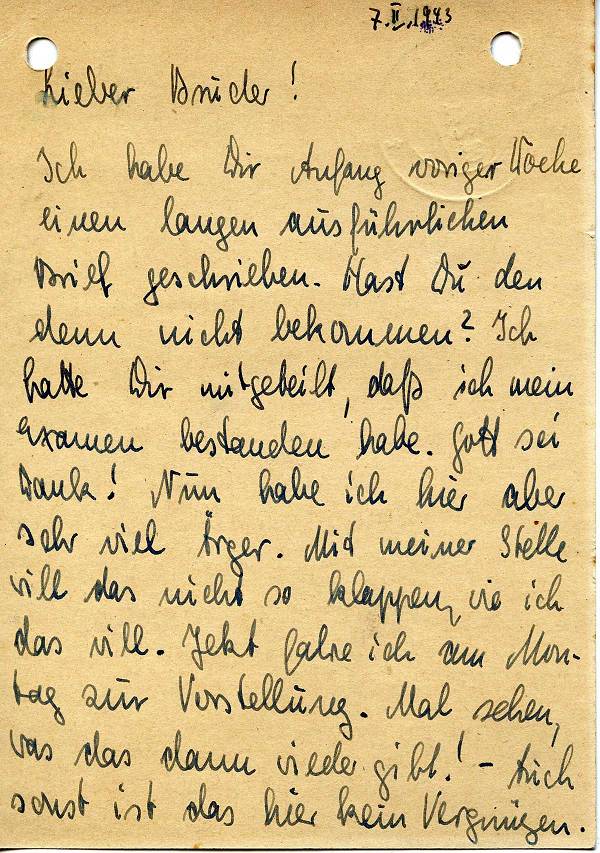 7.II.1943
Lieber Bruder!
Ich habe Dir Anfang voriger Woche
einen langen ausführlichen
Brief geschrieben. Hast Du den
denn nicht bekommen? Ich
hatte Dir mitgeteilt, daß ich mein
Examen bestanden habe. Gott sei
Dank! Nun habe ich hier aber
sehr viel Ärger. Mit meiner Stelle
will das nicht so klappen, wie ich
das will. Jetzt fahre ich am Mon-
tag zur Vorstellung. Mal sehen,
was das dann wieder gibt! - Auch
sonst ist das hier kein Vergnügen.